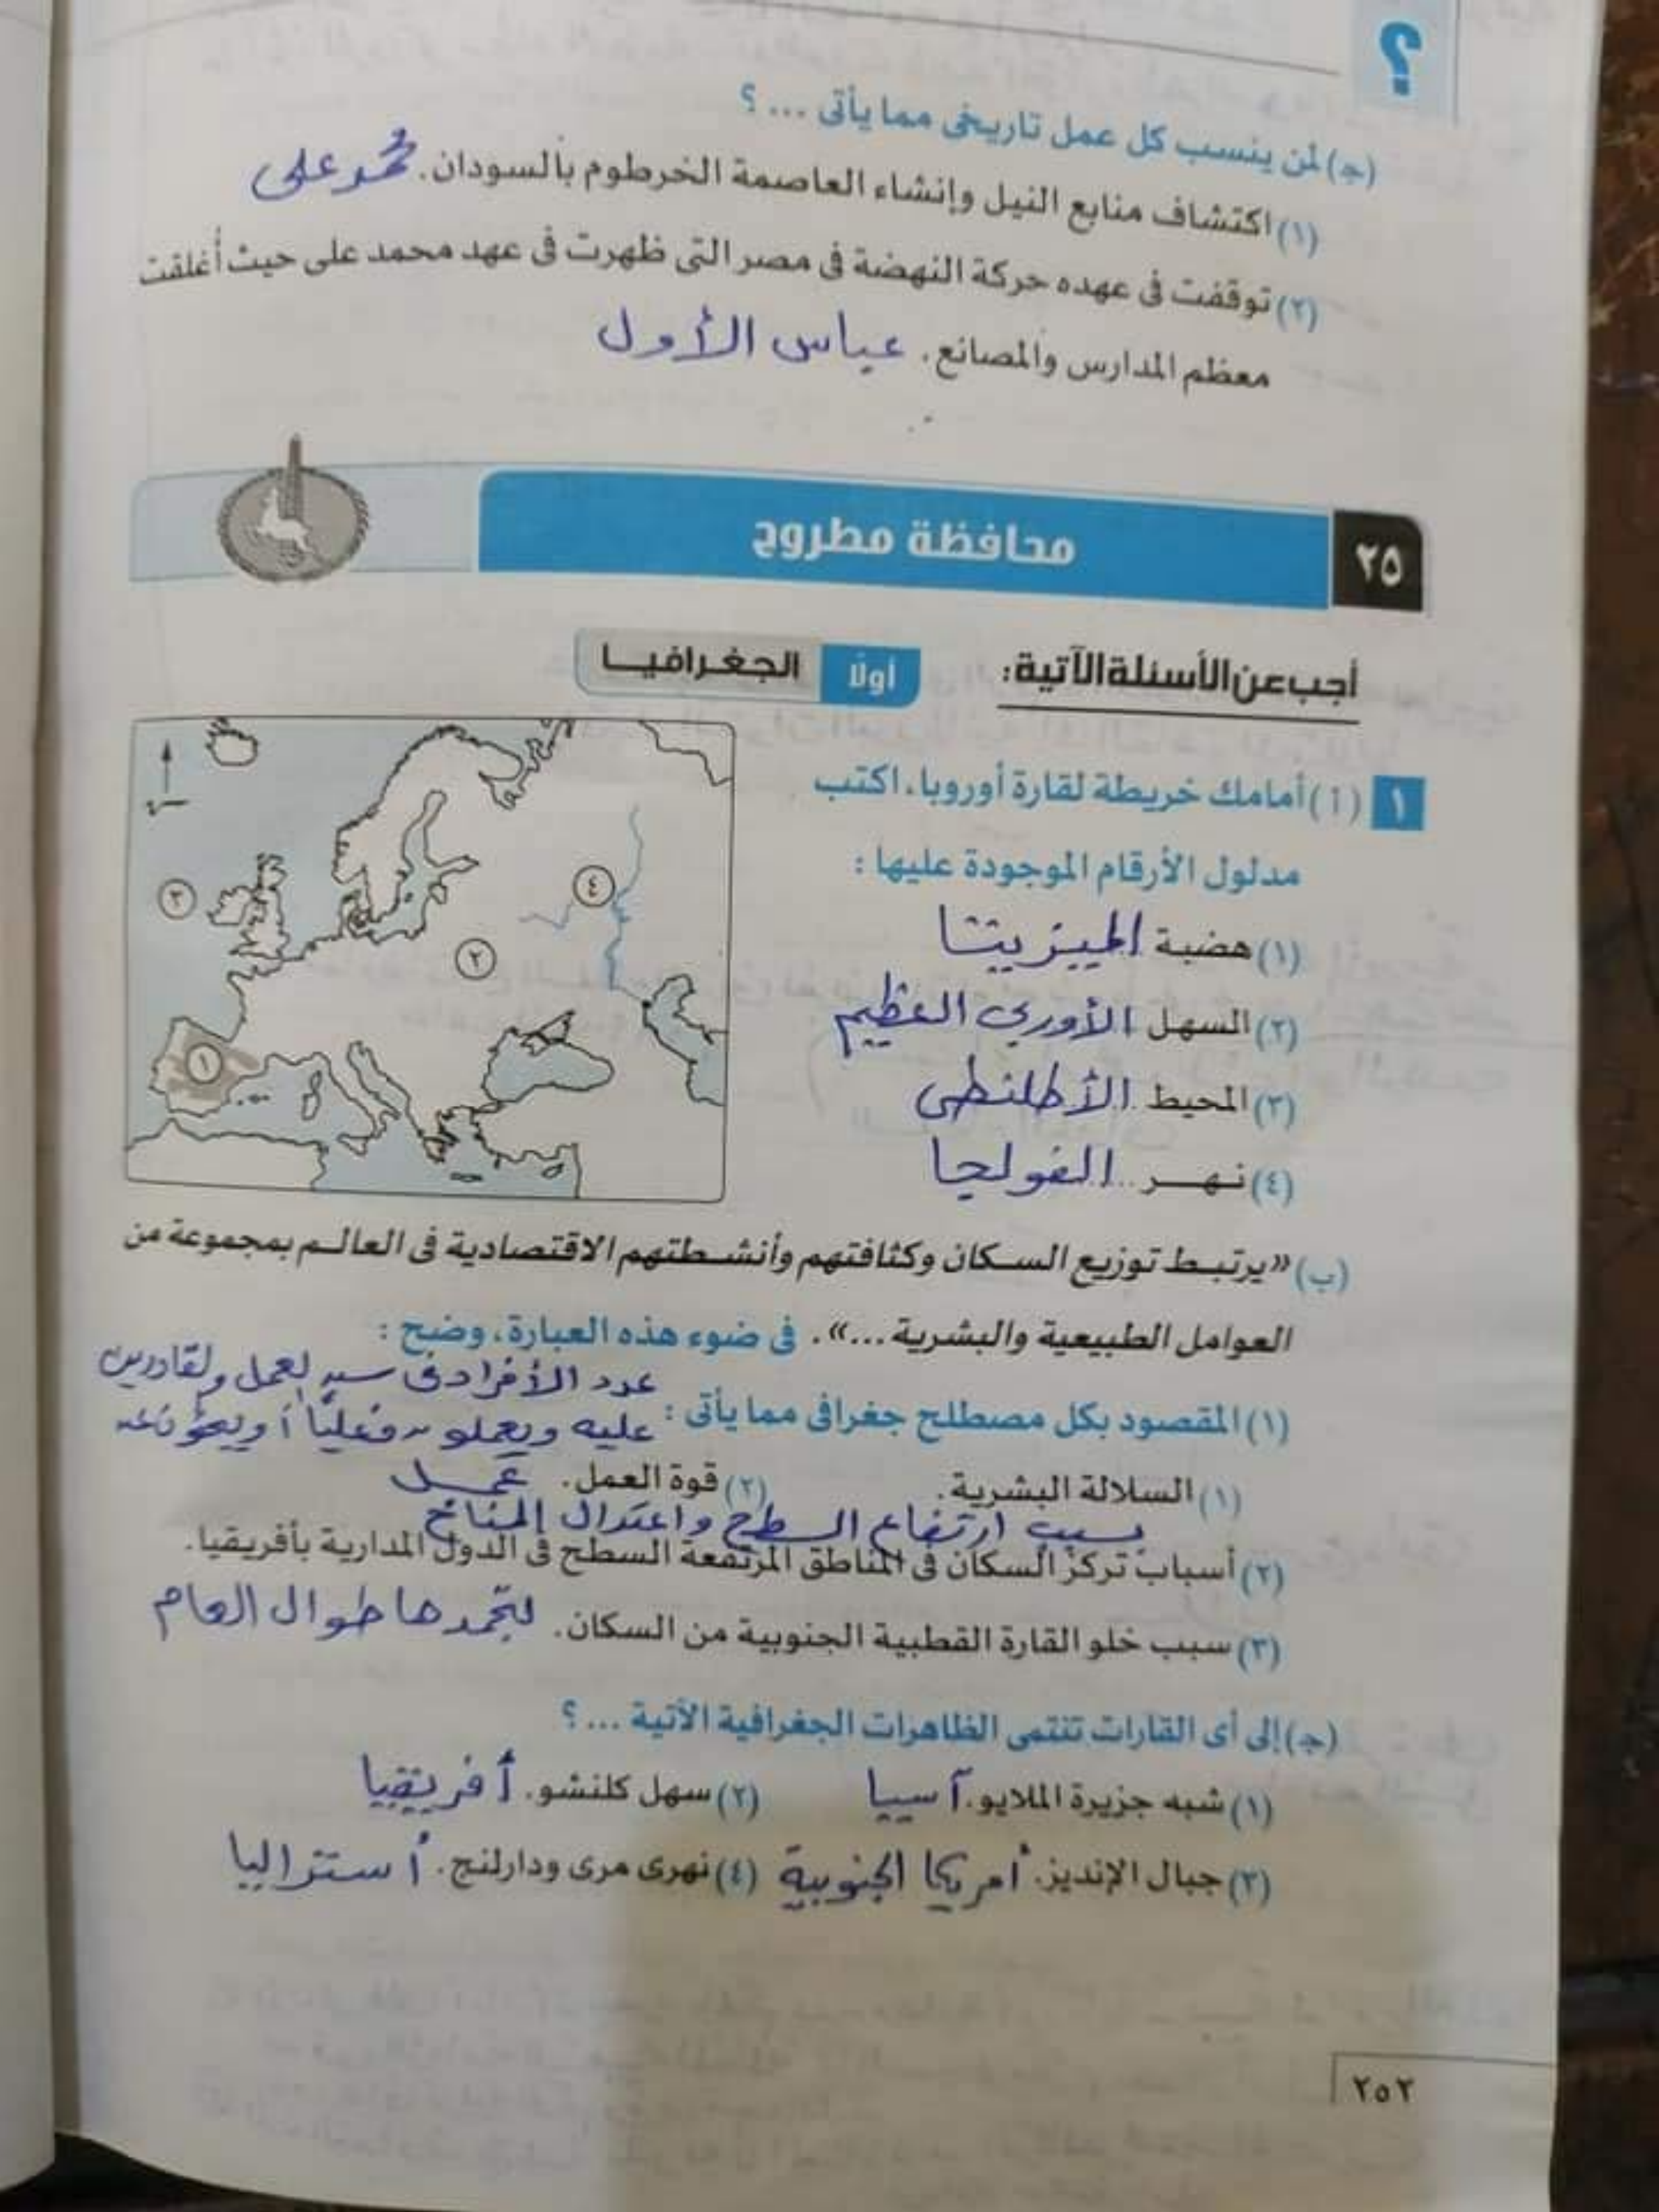 ؟
(جـ) لمن ينسب كل عمل تاريخى مما يأتى ... ؟
(١) اكتشاف منابع النيل وإنشاء العاصمة الخرطوم بالسودان. محمد على
(٢) توقفت فى عهده حركة النهضة فى مصر التى ظهرت فى عهد محمد على حيث أُغلقت
معظم المدارس والمصانع. عباس الأول
٢٥ محافظة مطروح
أجب عن الأسئلة الآتية:
أولًا الجغرافيا
١ (أ) أمامك خريطة لقارة أوروبا، اكتب
مدلول الأرقام الموجودة عليها :
(١) هضبة الميزيتا
(٢) السهل الأوربى العظيم
(٣) المحيط الأطلنطى
(٤) نهر الفولجا
٣
٤
٢
١
(ب) «يرتبط توزيع السكان وكثافتهم وأنشطتهم الاقتصادية فى العالم بمجموعة من
العوامل الطبيعية والبشرية ...». فى ضوء هذه العبارة، وضح :
(١) المقصود بكل مصطلح جغرافى مما يأتى :
عدد الأفراد فى سن العمل والقادرين
عليه ويعملون فعليًا أو يبحثون عن
عمل
(١) السلالة البشرية. (٢) قوة العمل.
بسبب ارتفاع السطح واعتدال المناخ
(٢) أسباب تركز السكان فى المناطق المرتفعة السطح فى الدول المدارية بأفريقيا.
(٣) سبب خلو القارة القطبية الجنوبية من السكان. لتجمدها طوال العام
(جـ) إلى أى القارات تنتمى الظاهرات الجغرافية الآتية ... ؟
(١) شبه جزيرة الملايو. آسيا (٢) سهل كلنشو. أفريقيا
(٣) جبال الإنديز. أمريكا الجنوبية (٤) نهرى مرى ودارلنج. أستراليا
٢٥٢